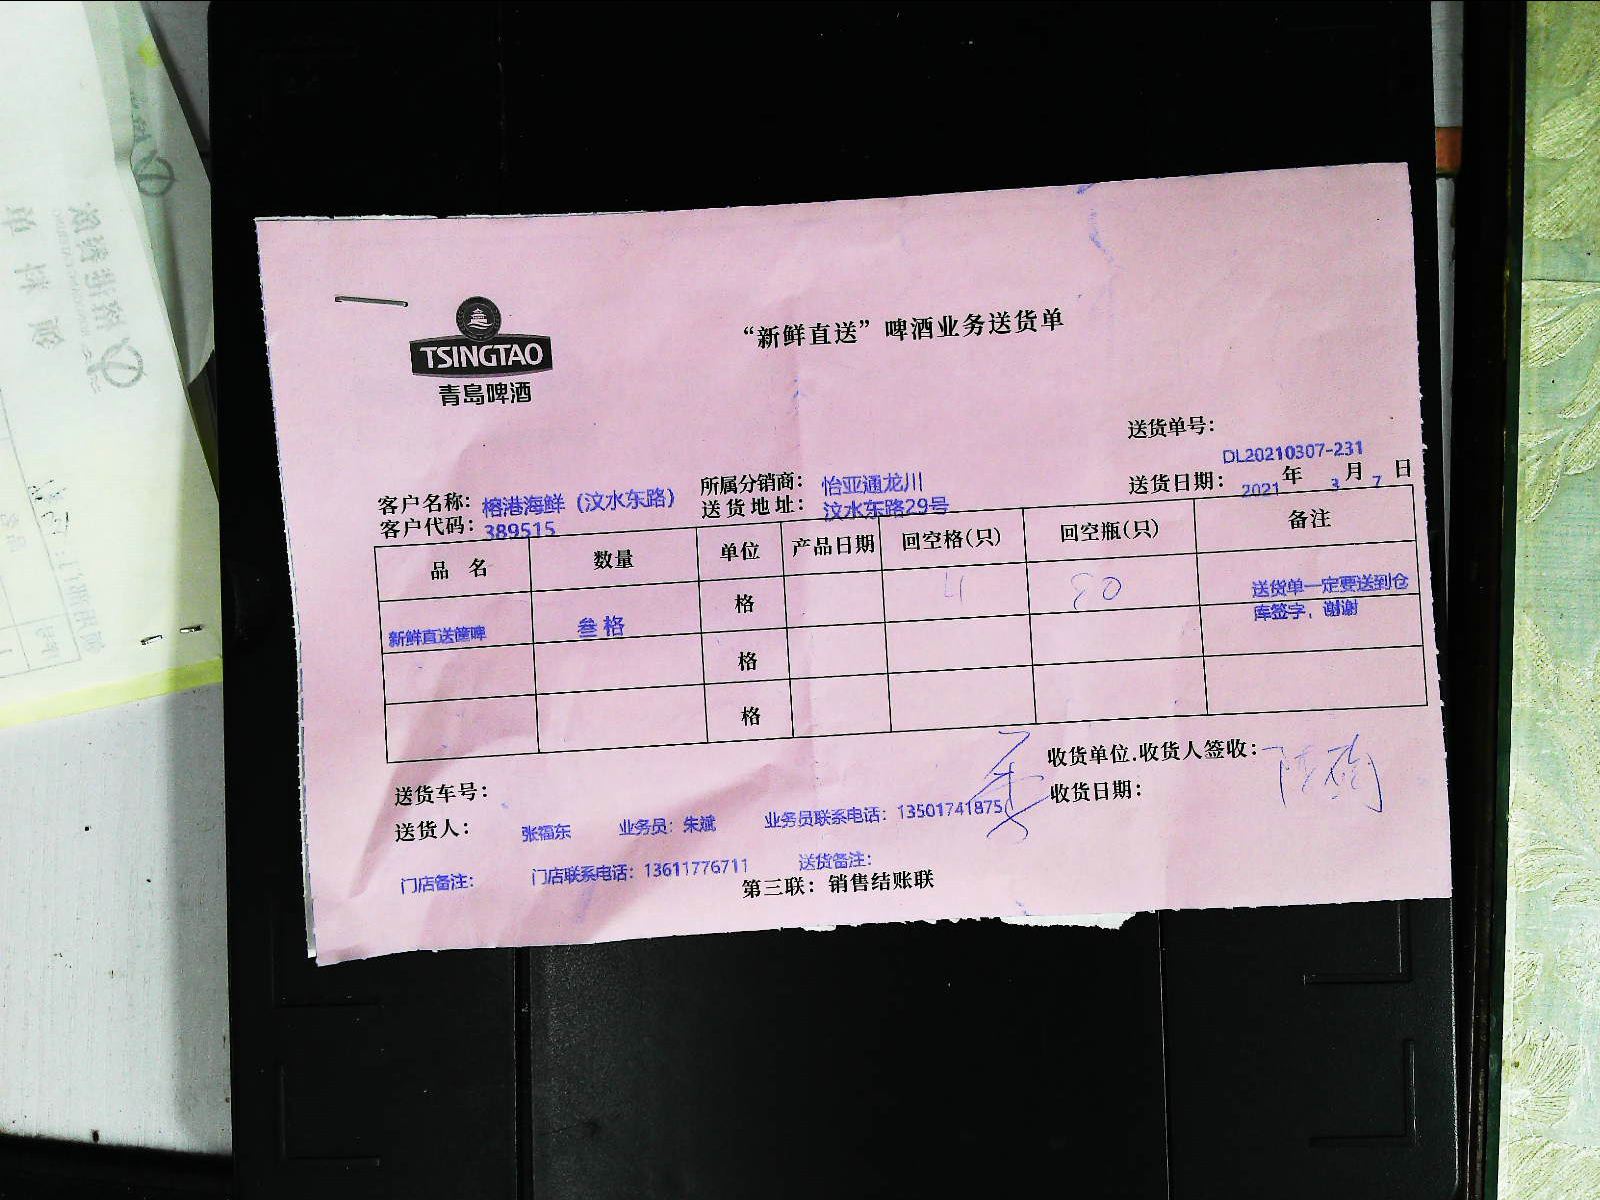 TSINGTAO
青岛啤酒
“新鲜直送”啤酒业务送货单
送货单号：
DL20210307-231
客户名称：榕港海鲜（汶水东路） 所属分销商：怡亚通龙川 送货日期：2021年3月7日
客户代码：389515 送货地址：汶水东路29号
品 名 数量 单位 产品日期 回空格(只) 回空瓶(只) 备注
新鲜直送筐啤 叁格 格 4 送货单一定要送到仓
库签字，谢谢
格
格
送货车号： 收货单位.收货人签收：
送货人： 张福东 业务员：朱斌 业务员联系电话：13501741875 收货日期：
门店备注： 门店联系电话：13611776711 送货备注：
第三联：销售结账联